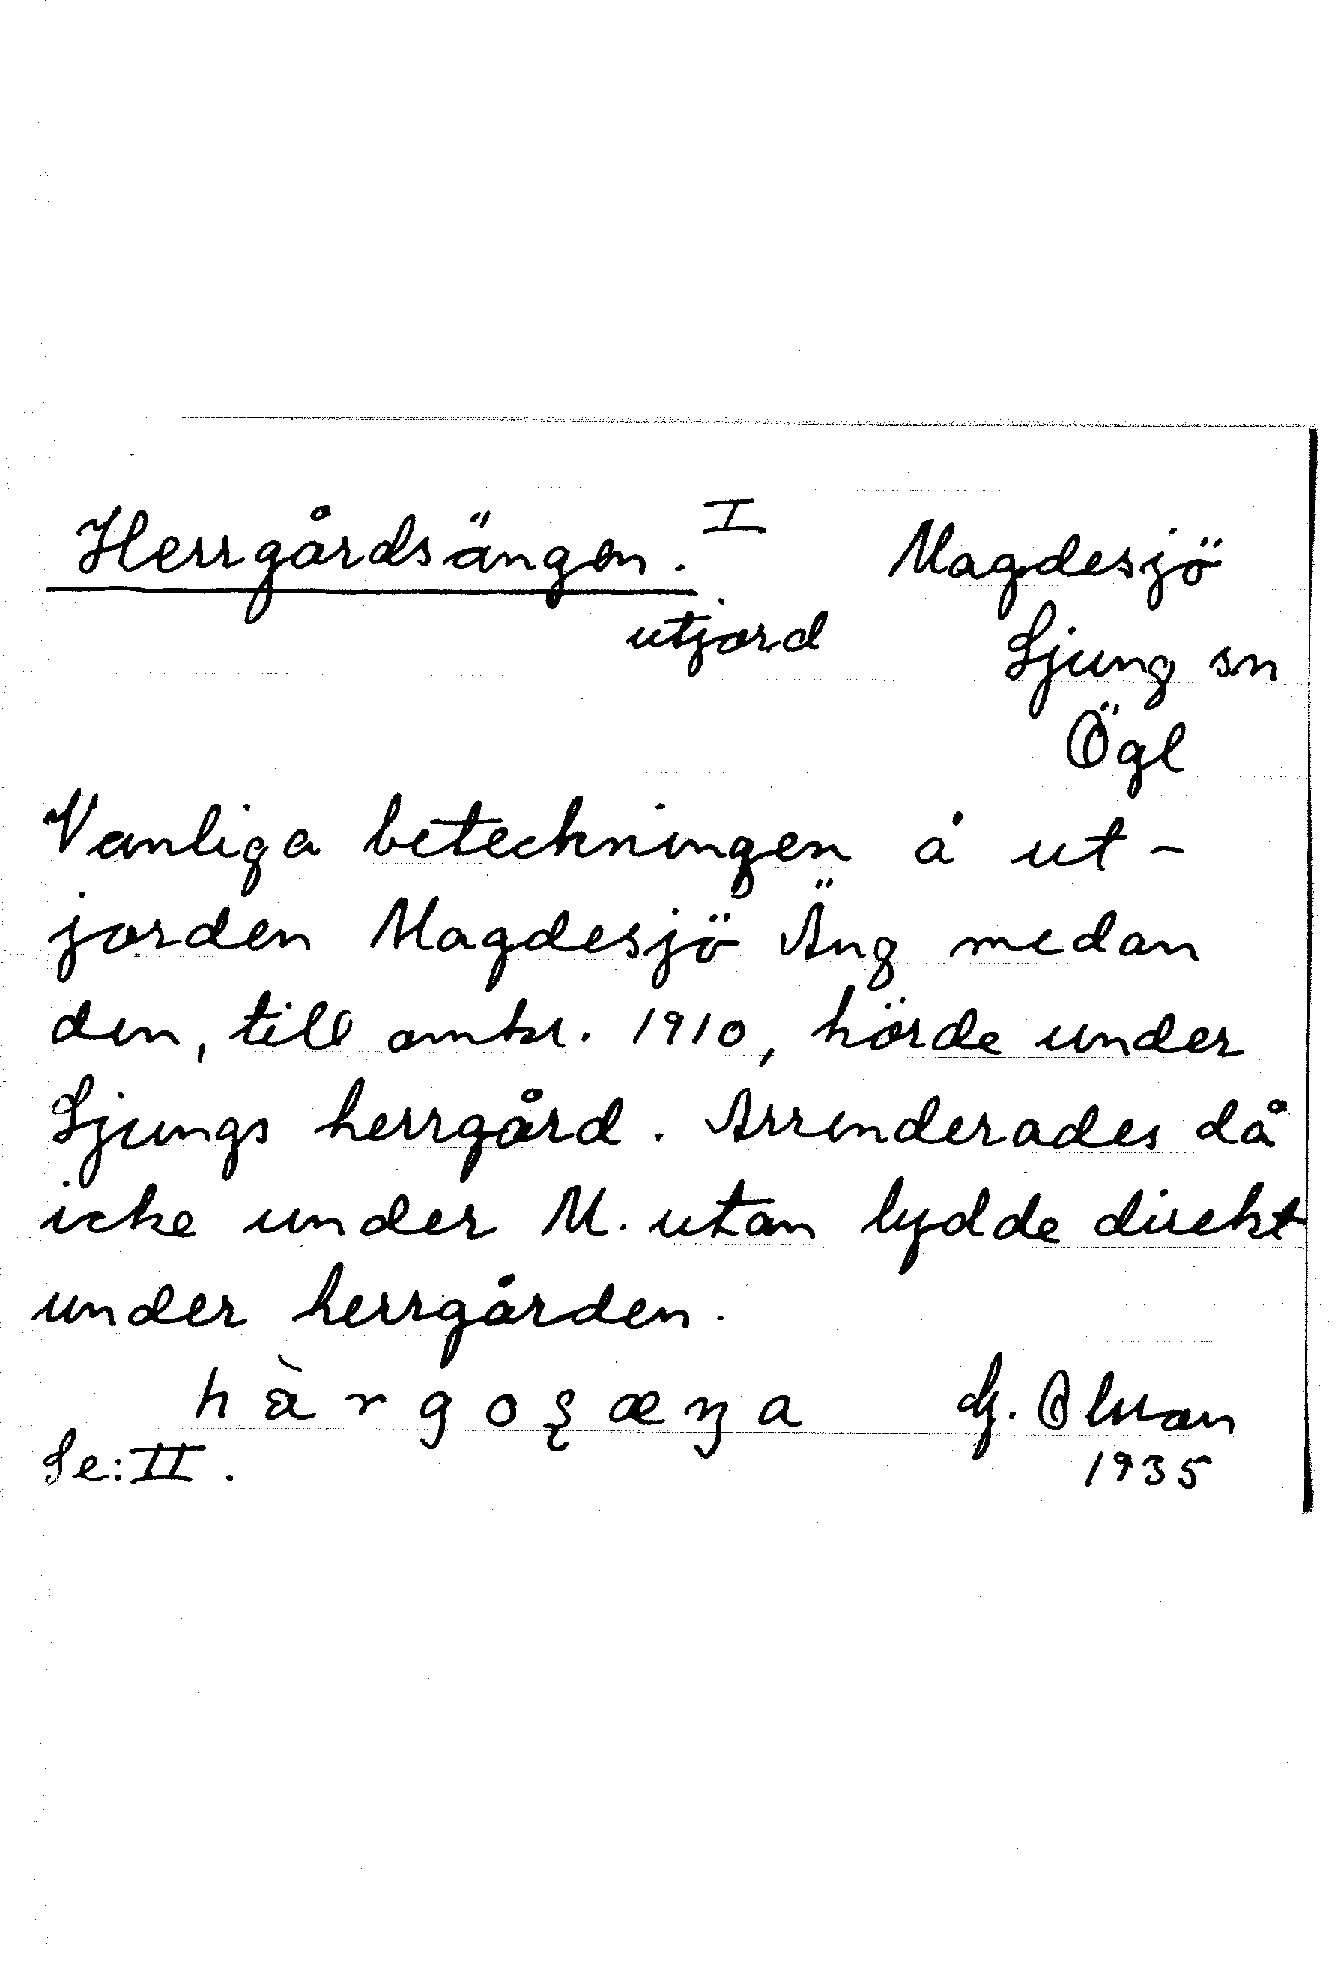 Herrgårdsängen. I Magdesjö
utjord Ljung sn
Ögl
Vanliga beteckningen å ut-
jorden Magdesjö Äng medan
den, till omkr. 1910, hörde under
Ljungs herrgård. Arrenderades då
icke under M. utan lydde direkt
under herrgården.
hàrgoʂæŋa G. Olsson
Se: II. 1935